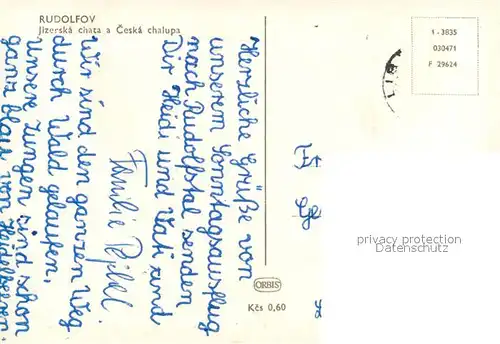 RUDOLFOV
Jizerská chata a Česká chalupa
Herzliche Grüße von
unserem Sonntagsausflug
nach Rudolfstal senden
Dir Heidi und Vati und
Familie
Wir sind den ganzen Weg
durch Wald gelaufen,
unsere Zungen sind schon
ganz blau von Heidelbeeren.
ORBIS
Kčs 0,60
1 - 3835
030471
F 29624
privacy protection
Datenschutz